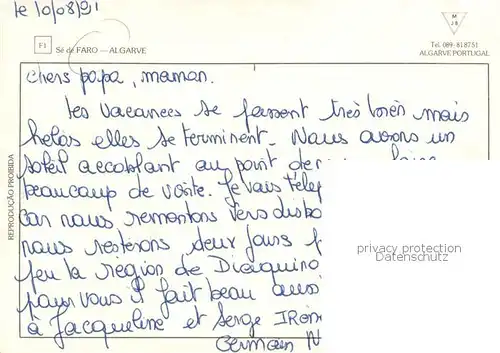 le 10/08/91
M
JB
F1
Sé de FARO — ALGARVE
Tel. 089-818751
ALGARVE PORTUGAL
chers papa, maman.
Les vacances se passent très bien mais
helas elles se terminent. Nous avons un
soleil accablant au point de
beaucoup de visite. Je vais
car nous remontons vers
nous resterons deux jours
peu la région de
pour vous il fait beau aussi
à Jacqueline et Serge
Germain
REPRODUÇÃO PROIBIDA
privacy protection
Datenschutz